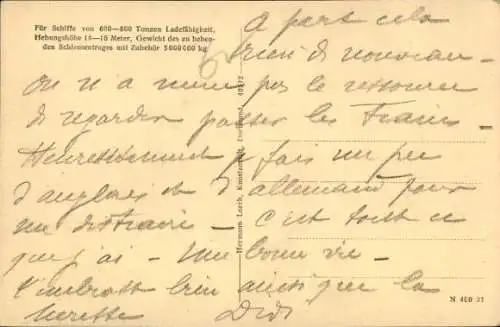 Für Schiffe von 600—800 Tonnen Ladefähigkeit,
Hebungshöhe 14—16 Meter, Gewicht des zu heben-
den Schleusentroges mit Zubehör 5 000 000 kg
A part cela
rien de nouveau -
on n'a même pas la ressource
de regarder passer les trains
Heureusement je fais un peu
d'anglais et d'allemand pour
me distraire - c'est tout ce
que j'ai - une bonne vie -
t'embrasse bien ainsi que la
Didi
Hermann Lorch, Kunstanstalt, Dortmund.
N 410 37